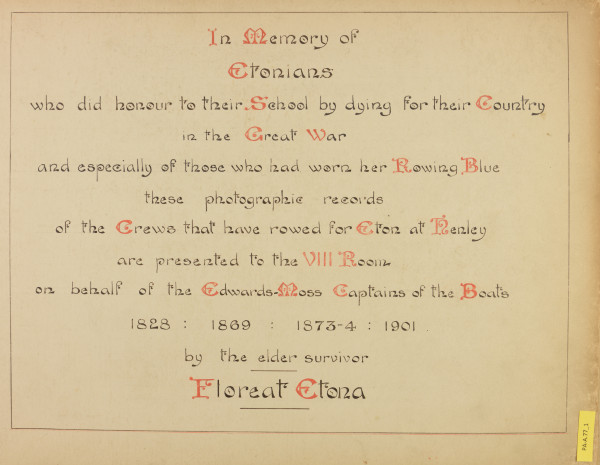 In Memory of
Etonians
who did honour to their School by dying for their Country
in the Great War
and especially of those who had worn her Rowing Blue
these photographic records
of the Crews that have rowed for Eton at Henley
are presented to the VIII Room
on behalf of the Edwards-Moss Captains of the Boats
1828 : 1869 : 1873-4 : 1901
by the elder survivor
Floreat Etona
PA-A.77_1